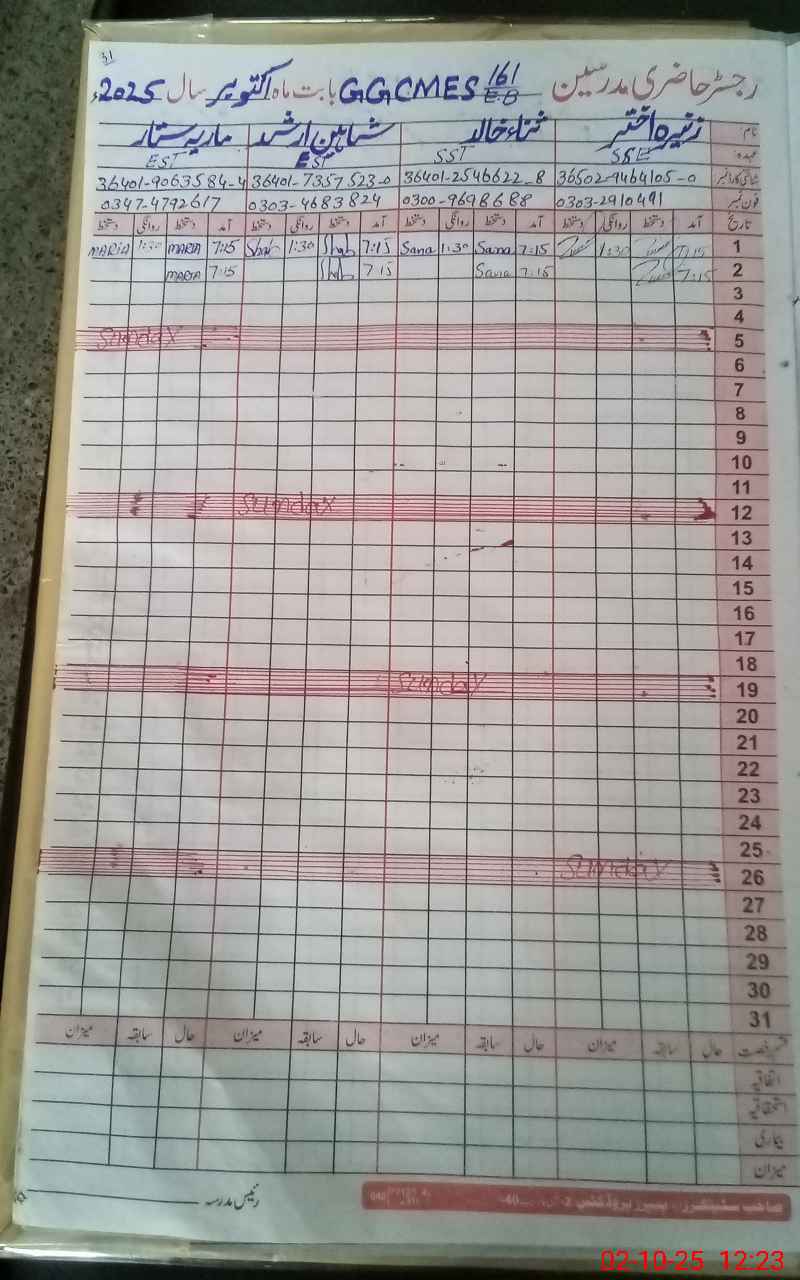 31
رجسٹر حاضری مدرسین GGCMES 161/E.B بابت ماہ اکتوبر سال 2025ء
نام: زنیرہ اختر ثناء خالد شاہین ارشد ماریہ ستار
عہدہ: SSE SST EST EST
شناختی کارڈ نمبر 36502-9464105-0 36401-2546622-8 36401-7357523-0 36401-9063584-4
فون نمبر 0303-2910491 0300-9698688 0303-4683824 0347-4792617
تاریخ آمد دستخط روانگی دستخط آمد دستخط روانگی دستخط آمد دستخط روانگی دستخط آمد دستخط روانگی دستخط
1 7:15 1:30 7:15 Sana 1:30 Sana 7:15 Shah 1:30 Shah 7:15 MARIA 1:30 MARIA
2 7:15 7:15 Sana 7:15 Shah 7:15 MARIA
3
4
5 Sunday
6
7
8
9
10
11
12 Sunday
13
14
15
16
17
18
19 Sunday
20
21
22
23
24
25
26 Sunday
27
28
29
30
31
قسم رخصت حال سابقہ میزان حال سابقہ میزان حال سابقہ میزان حال سابقہ میزان
اتفاقیہ
استحقاقیہ
بیماری
میزان
رئیس مدرسہ
02-10-25 12:23